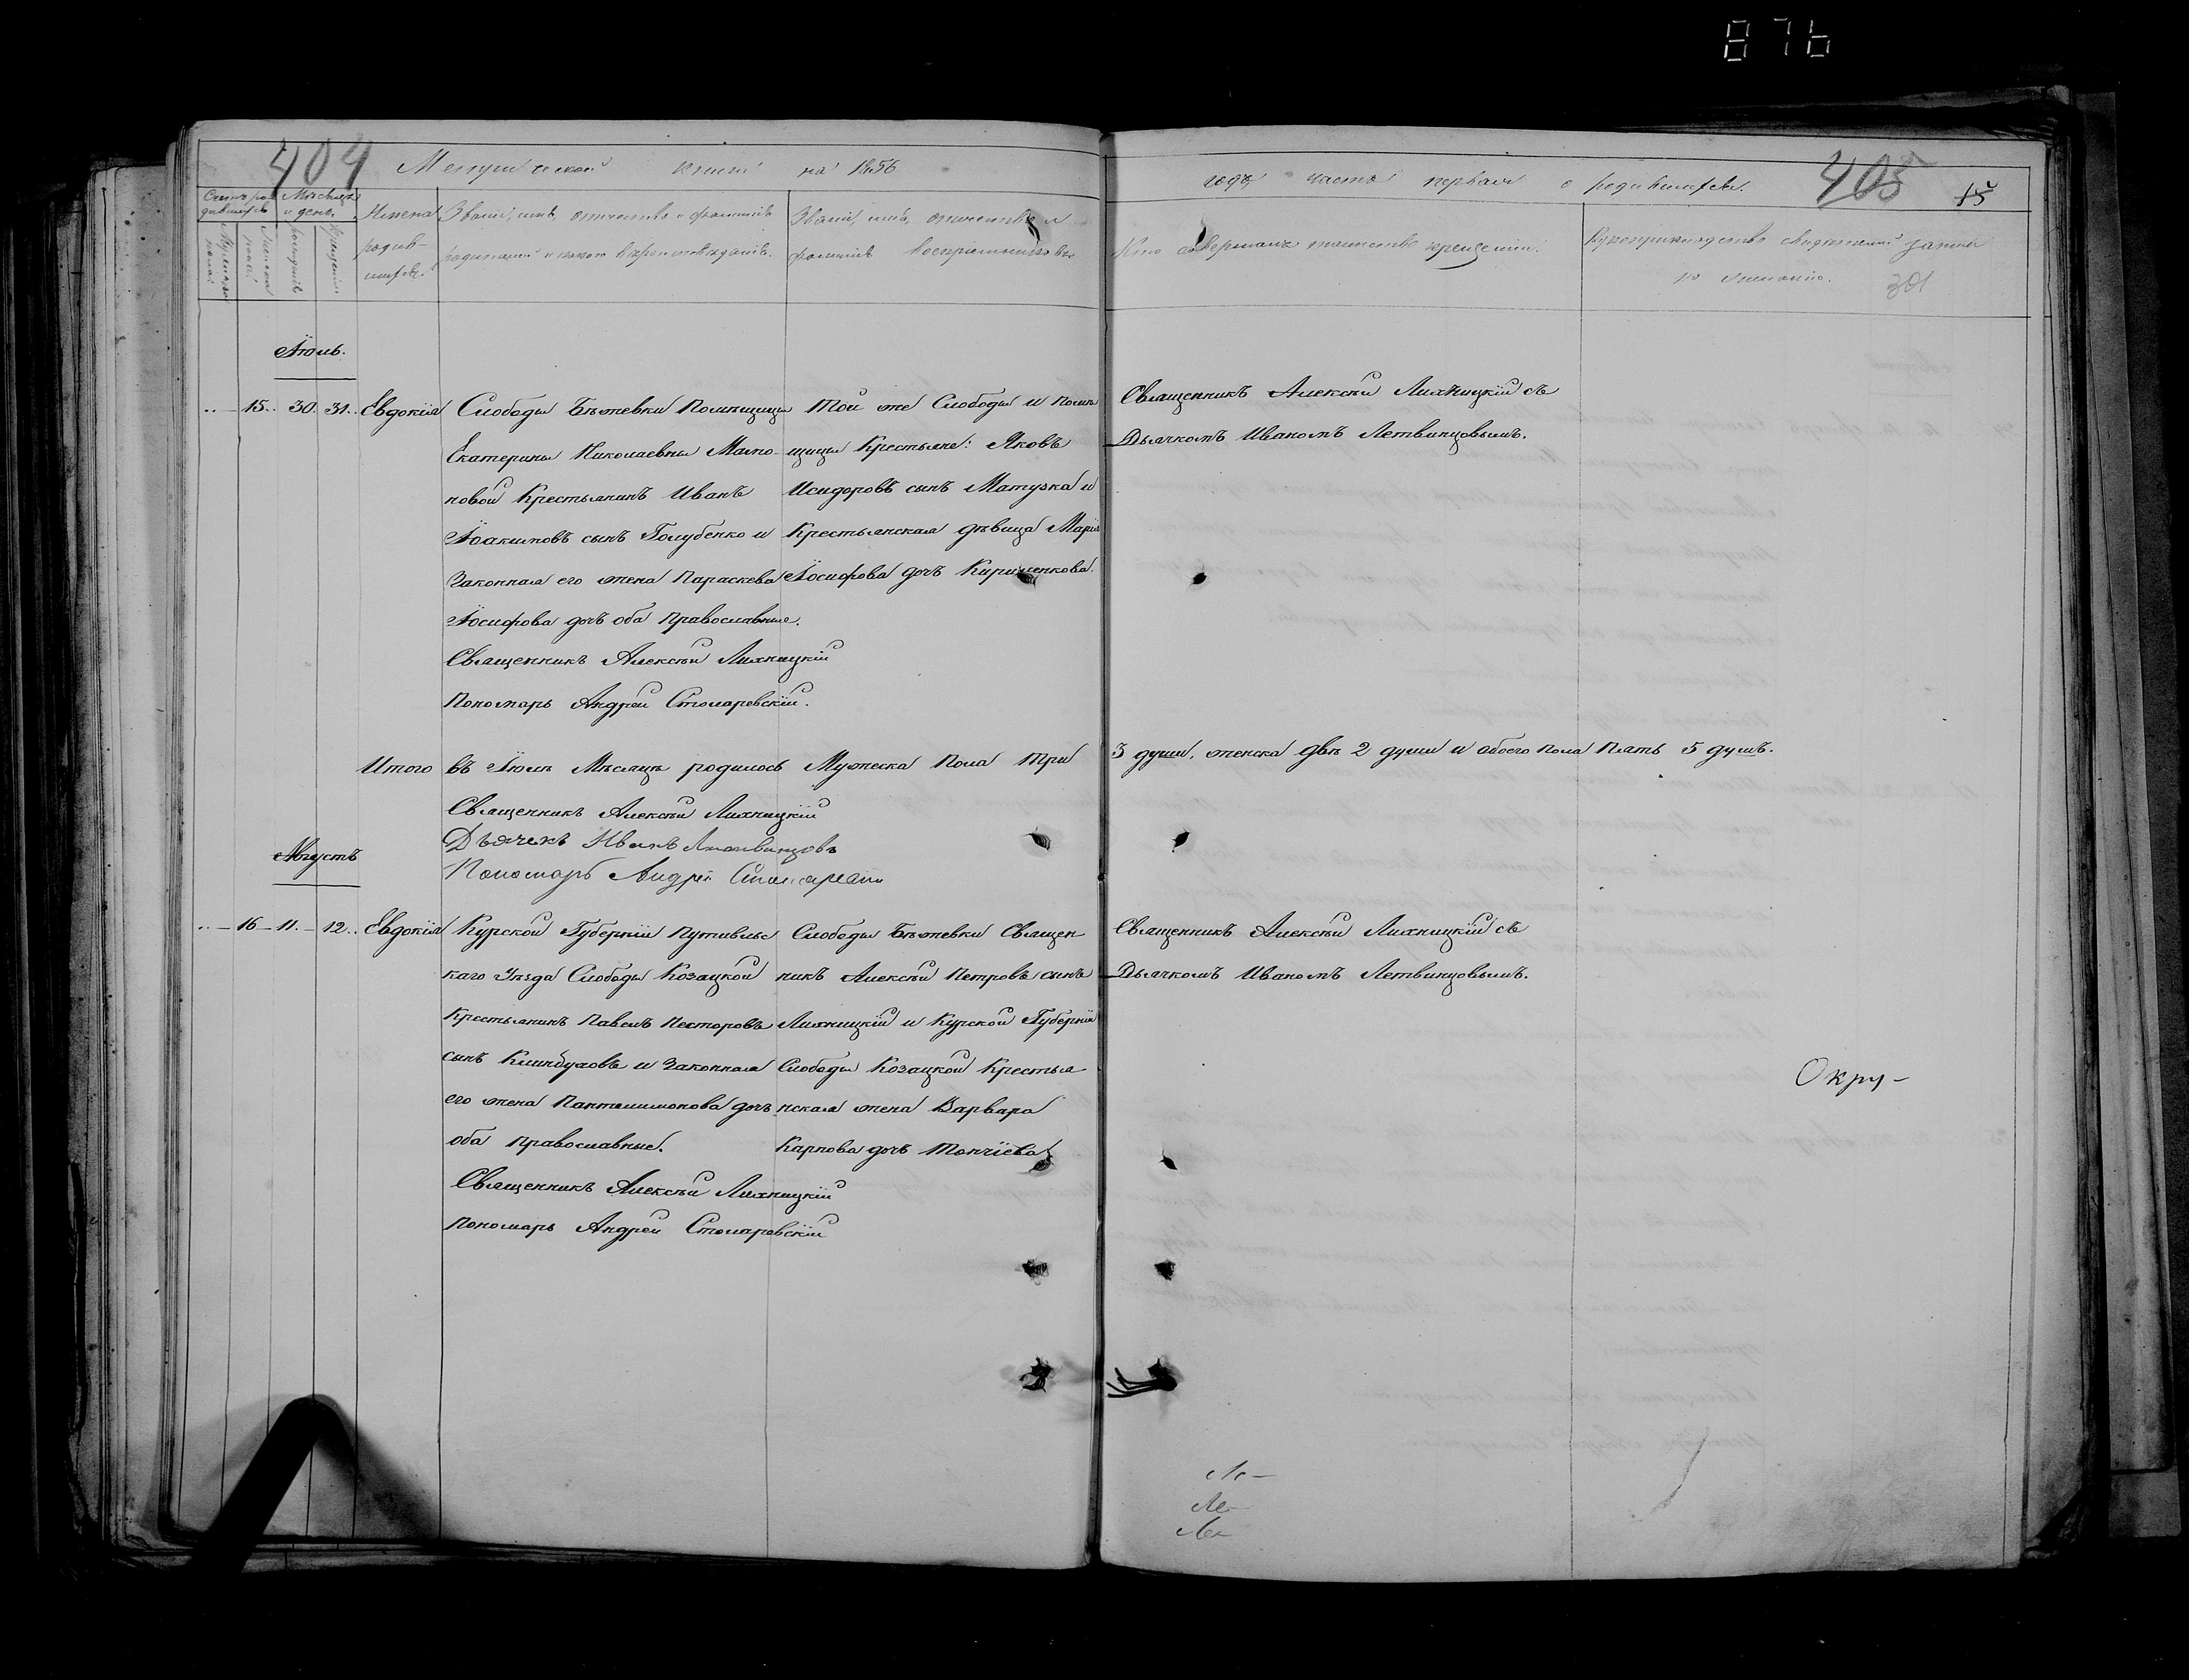 876
404 405 15
Метрической книги на 1856
годъ часть первая о родившихся.
Счетъ родившихся
Мѣсяцъ и день
Мужеска пола
Женска пола
рожденія
крещенія
Имена родившихся.
Званіе, имя, отчество и фамилія
родителей и какого вѣроисповѣданія.
Званіе, имя, отчество и
фамилія воспріемниковъ
Кто совершалъ таинство крещенія.
Рукоприкладство свидѣтелей записи
по желанію.
301
Іюль.
15 30 31 Евдокія
Слободы Бѣжевки Помѣщицы
Екатерины Николаевны
новой Крестьянинъ Иванъ
Іоакимовъ сынъ Голубенко и
Законная его жена Параскева
Іосифова дочь оба Православные.
Священникъ Алексѣй Лихницкій
Пономарь Андрей Столяревскій.
Той же Слободы и помѣ
щицы Крестьяне: Яковъ
Исидоровъ сынъ Матузка и
Крестьянская дѣвица Марія
Іосифова дочь Кириленкова.
Священникъ Алексѣй Лихницкій съ
Дьячкомъ Иваномъ Летвинцовымъ.
Итого въ Іюлѣ Мѣсяцѣ родилось Мужеска Пола три
3 души, женска двѣ 2 души и обоего пола пять 5 душъ.
Священникъ Алексѣй Лихницкій
Дьячекъ Иванъ Литвинцовъ
Пономарь Андрей
Августъ
16 11 12 Евдокія
Курской Губерніи Путивльс
каго Уѣзда Слободы Козацкой
Крестьянинъ Павелъ Несторовъ
сынъ Клинбуховъ и Законная
его жена Пантелимонова дочь
оба православные.
Священникъ Алексѣй Лихницкій
Пономарь Андрей Столяревскій
Слободы Бѣжевки Священ
никъ Алексѣй Петровъ сынъ
Лихницкій и Курской Губерніи
Слободы Козацкой Крестья
нская жена Варвара
Карпова дочь
Священникъ Алексѣй Лихницкій съ
Дьячкомъ Иваномъ Летвинцовымъ.
Окру-